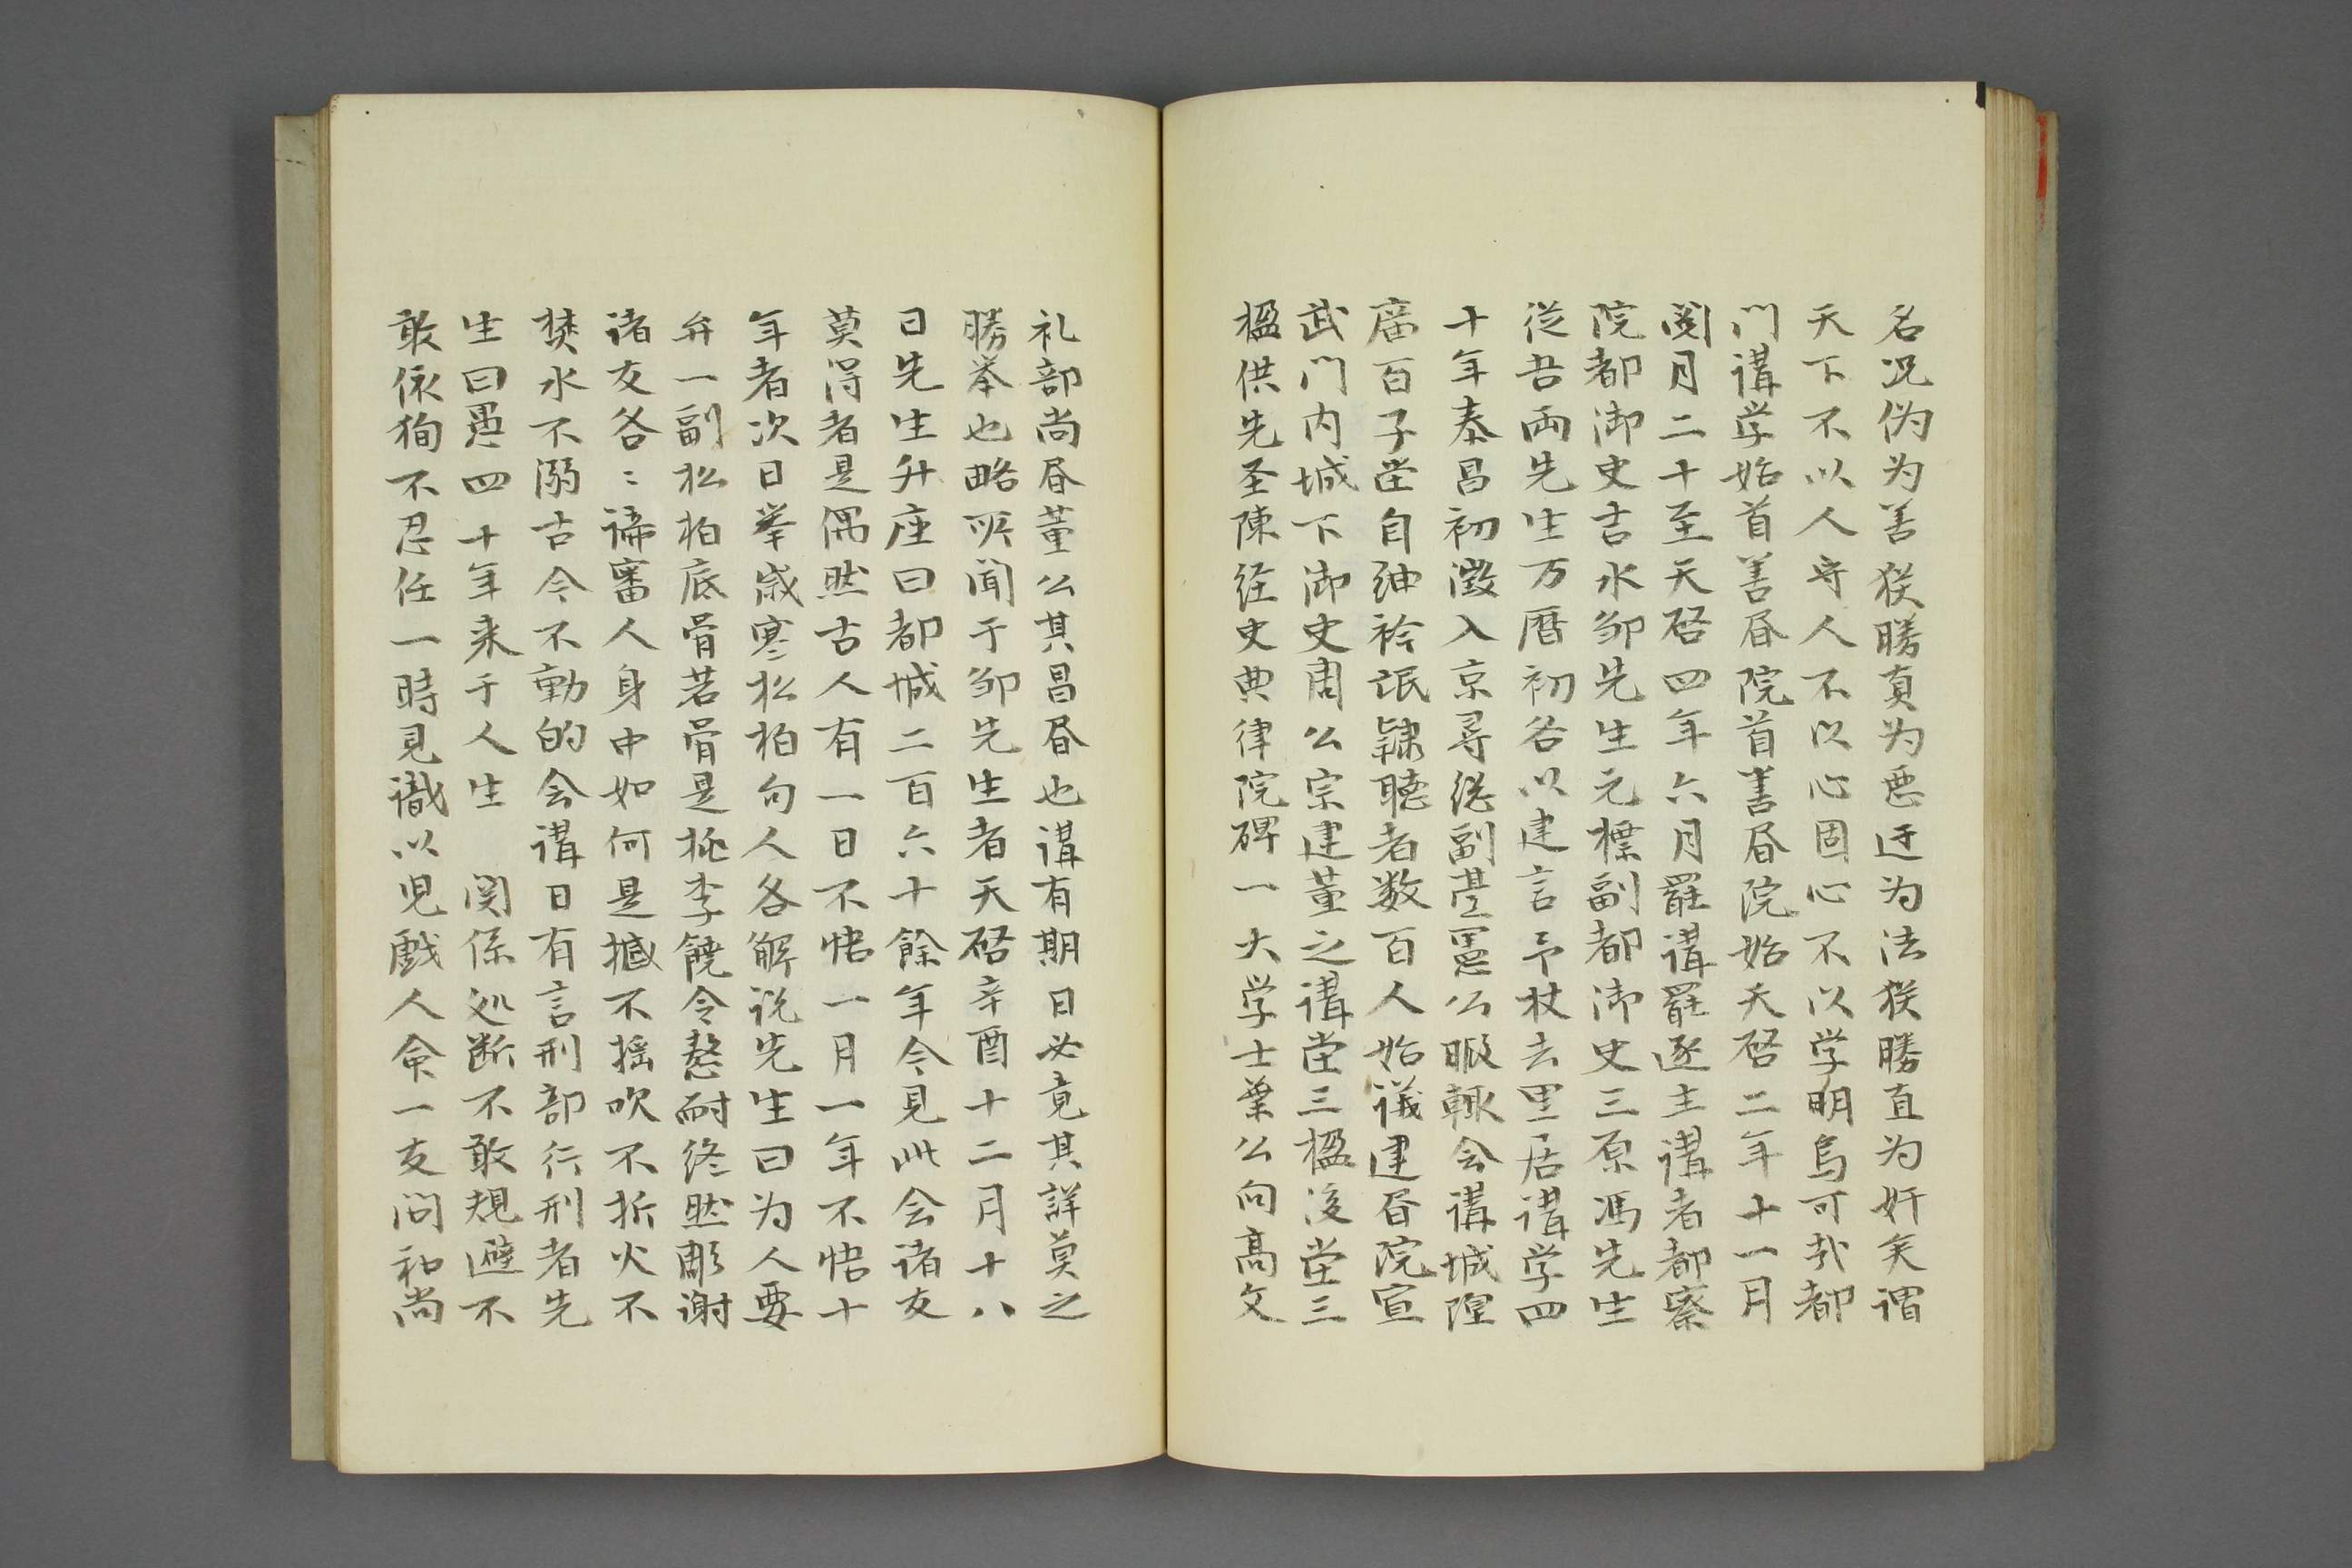 名况伪为善猴勝真为悪迂为法猴勝直为奸矣谓
天下不以人守人不以心固心不以学明烏可哉都
门講学始首善昼院首善昼院始天啓二年十一月
閲月二十至天啓四年六月罷講罷逐主講者都察
院都御史吉水邹先生元標副都御史三原馮先生
從吾両先生万暦初各以建言予杖去里居講学四
十年泰昌初澂入京尋総副䑓憲公暇輒会講城隍
庿百子堂自紳衿氓隷聴者数百人始議建昼院宣
武门内城下御史周公宗建董之講堂三楹後堂三
楹供先圣陳経史典律院碑一大学士葉公向高文
礼部尚昼董公其昌昼也講有期日必竟其詳莫之
勝举也略所闻于邹先生者天啓辛酉十二月十八
日先生升座曰都城二百六十餘年今見此会诸友
莫得者是偶然古人有一日不悟一月一年不悟十
年者次日挙歳寒松柏句人各解说先生曰为人要
弁一副松柏底骨若骨是桃李饒令憗耐终然彫谢
诸友各〻谛審人身中如何是撼不摇吹不折火不
焚水不溺古今不動的会講日有言刑部行刑者先
生曰愚四十年来于人生　関係処断不敢規避不
敢依狥不忍任一時見識以児戯人命一友问和尚